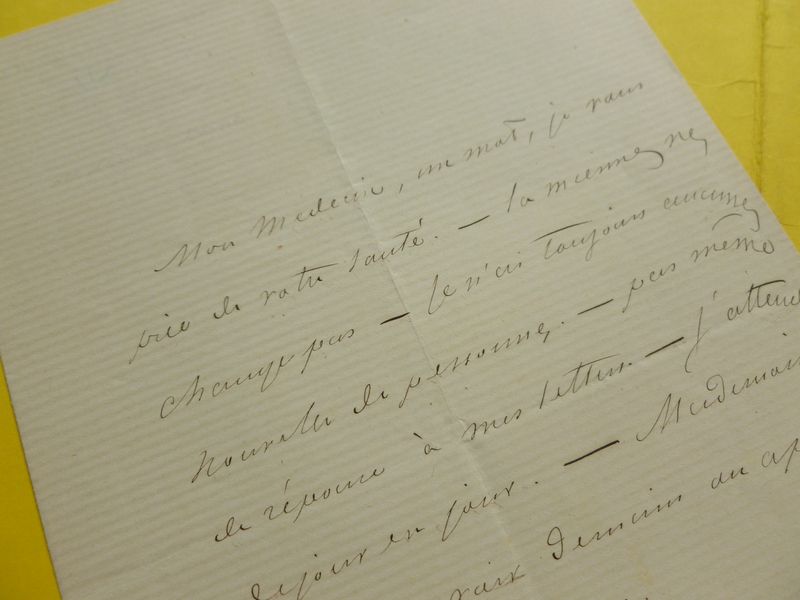 Mon Medecin, un mot, je vous
prie de votre santé. — la mienne ne
change pas — Je n'ai toujours aucune
nouvelle de personne. — pas même
de réponse à mes lettres. — J'attends
de jour en jour. — Mademois
demain ou ap